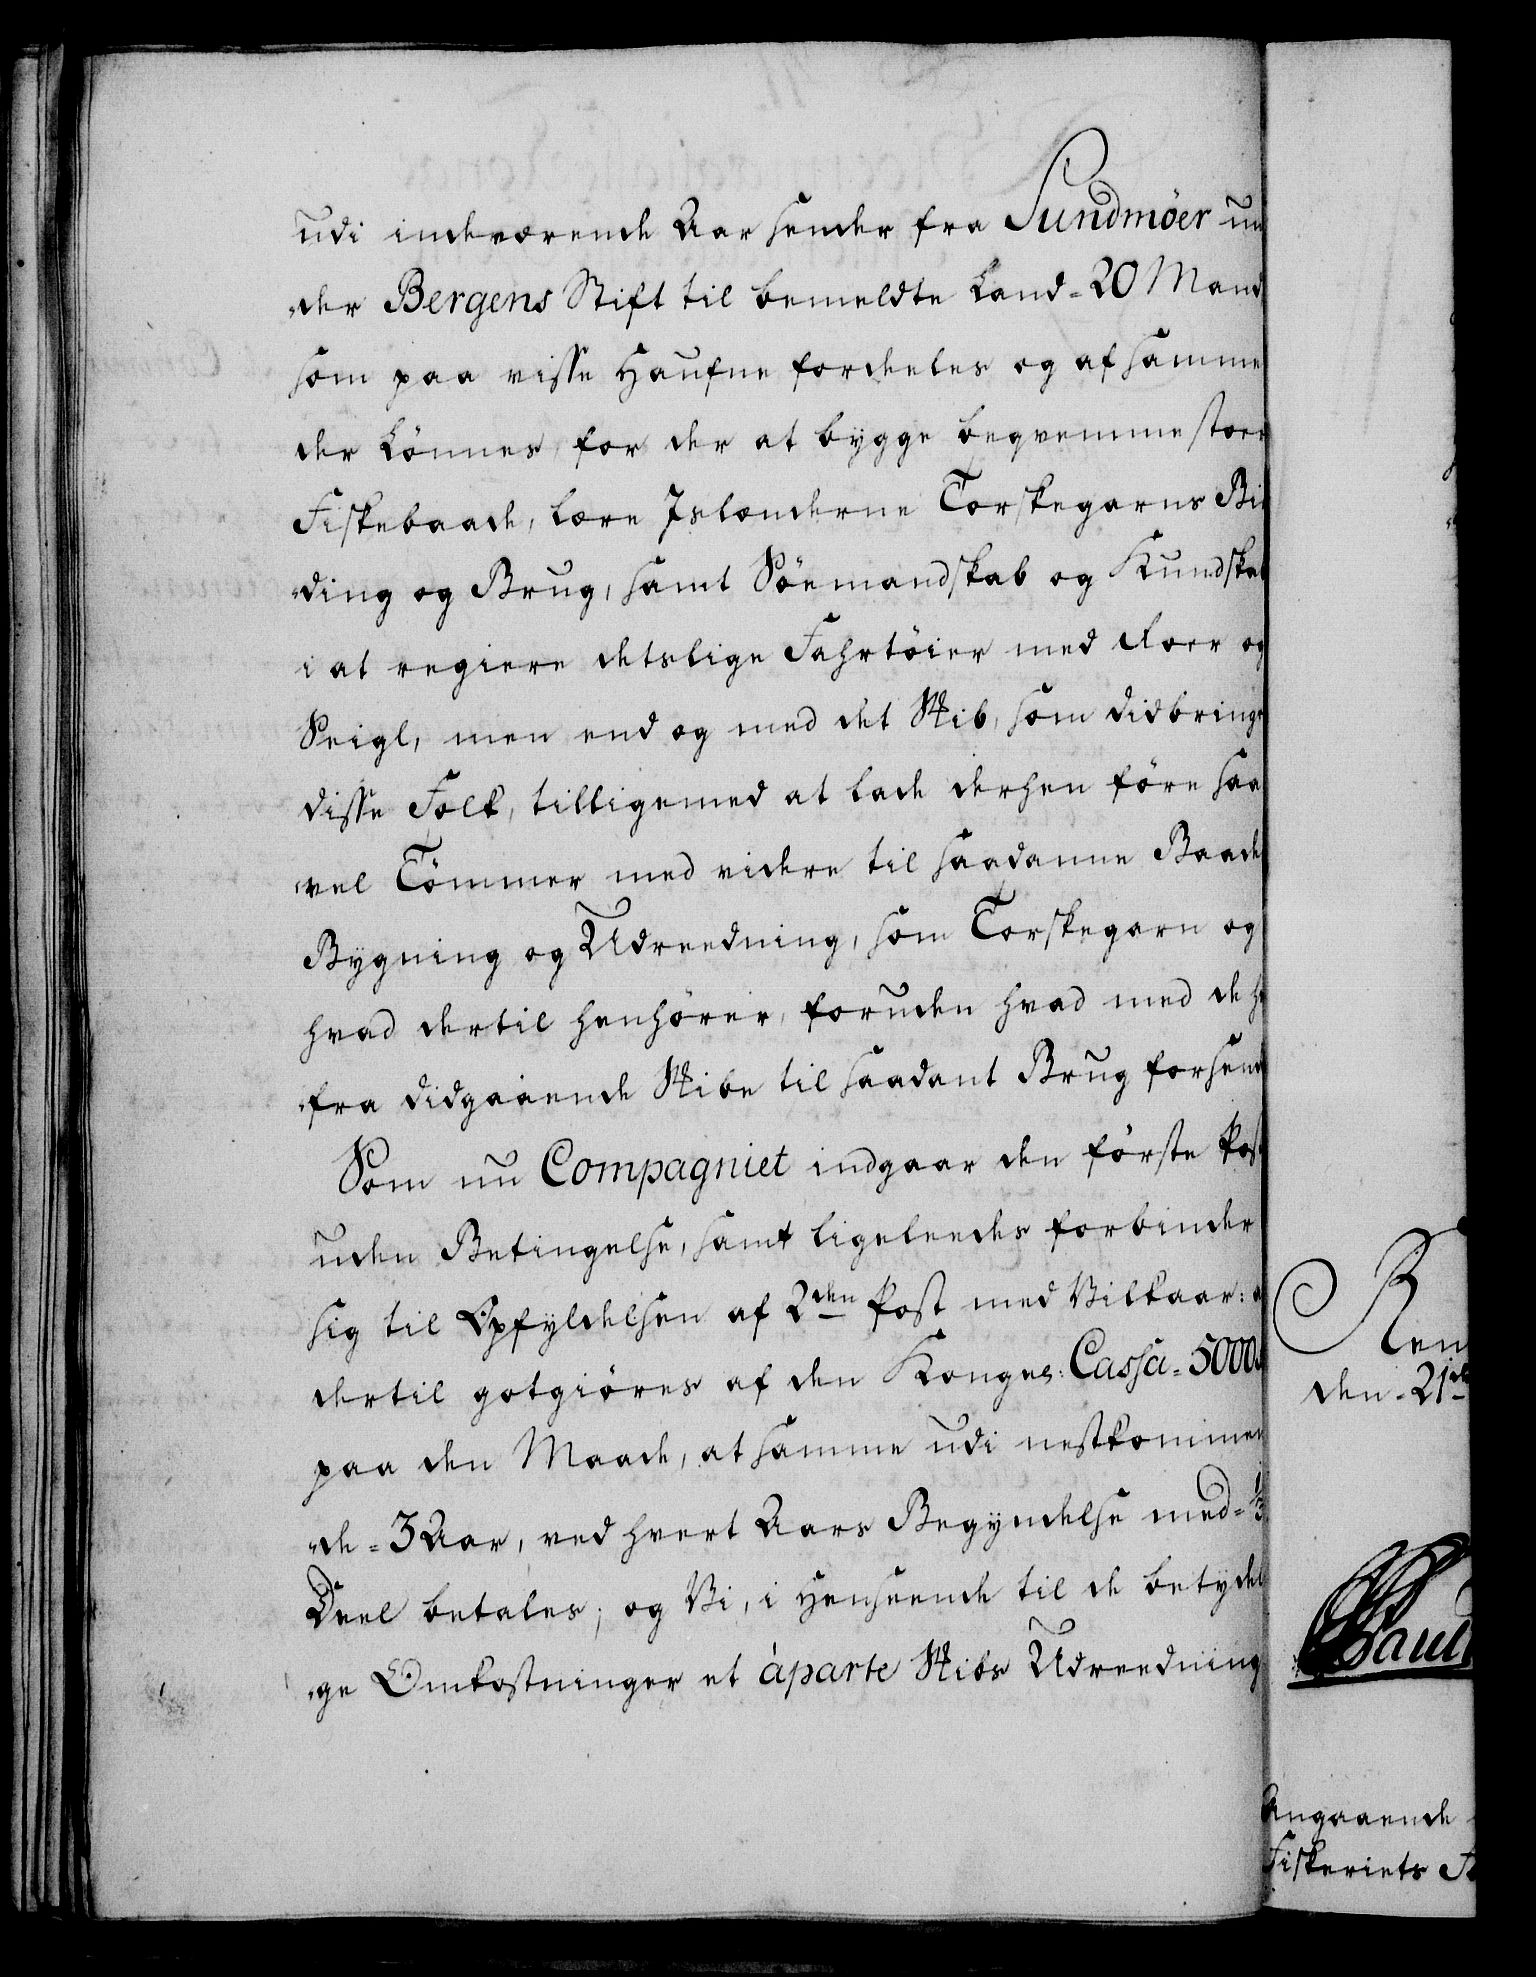 udi indeværende Aar sender fra Sundmöer un
„der Bergens Stift til bemeldte Land = 20 Mand
som paa visse Haufne fordeeles og af samme
der lönnes, for der at bygge beqvemme store
Fiskebaade, lære Islænderne Torskegarns Bin
„ding og Brug, samt Söemandskab og Kundskab
i at regiere detslige Fahrtöier med Roer og
Seigl, men end og med det Skib, som didbringe
disse Folk, tilligemed at lade derhen före saa
„vel Tömmer med videre til saadanne Baades
Bygning og Udreedning, som Torskegarn og
hvad dertil henhörer, foruden hvad med de he
„fra didgaaende Skibe til saadant Brug forsend
Som nu Compagniet indgaar den förste Post
uden Betingelse, samt ligeleedes forbinder
sig til Opfyldelsen af 2den Post med Vilkaar: a
dertil gotgiöres af den Kongel: Cassa = 5000
paa den Maade, at samme udi nestkommen
„de = 3 Aar, ved hvert Aars Begyndelse med = 1/3
Deel betales; og Vi, i Henseende til de betydel
„ge Omkostninger et àparte Skibs Udreedning
Ren
den = 21de
Angaaende
Fiskeriets F